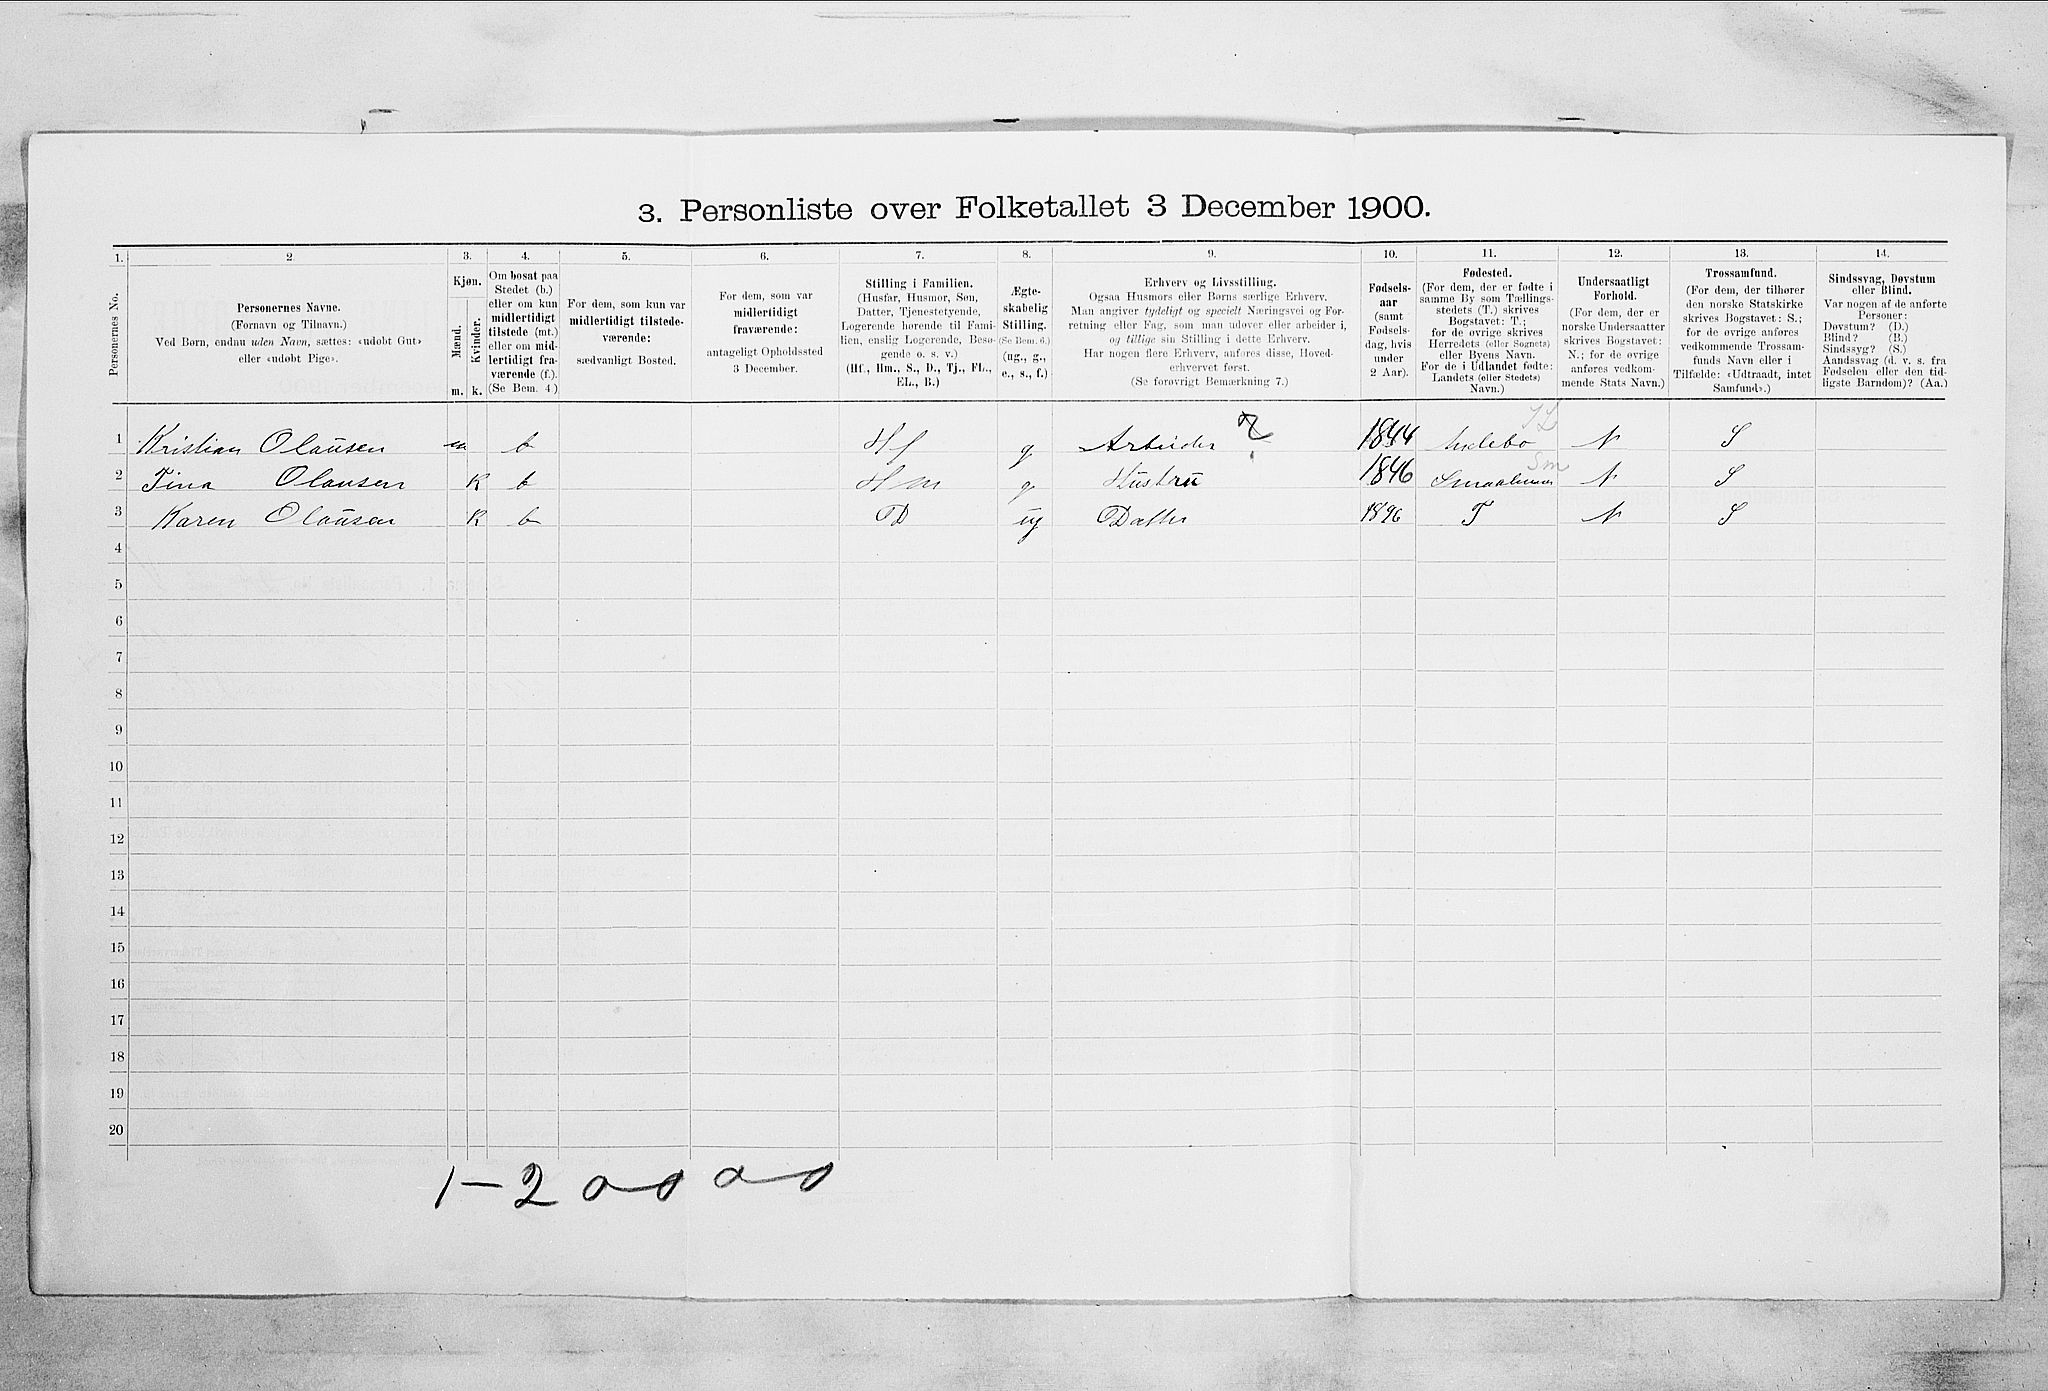 3. Personliste over Folketallet 3 December 1900.
1. 2. 3. 4. 5. 6. 7. 8. 9. 10. 11. 12. 13. 14.
Personernes No.
Personernes Navne.
(Fornavn og Tilnavn.)
Ved Børn, endnu uden Navn, sættes: «udøbt Gut»
eller «udøbt Pige».
Kjøn.
Mænd.
Kvinder.
m. k.
Om bosat paa
Stedet (b.)
eller om kun
midlertidigt
tilstede (mt.)
eller om mid-
lertidigt fra-
værende (f.).
(Se Bem. 4.)
For dem, som kun var
midlertidigt tilstede-
værende:
sædvanligt Bosted.
For dem, som var
midlertidigt
fraværende:
antageligt Opholdssted
3 December.
Stilling i Familien.
(Husfar, Husmor, Søn,
Datter, Tjenestetyende,
Logerende hørende til Fami-
lien, enslig Logerende, Besø-
gende o. s. v.)
(Hf., Hm., S., D., Tj., FL.,
EL., B.)
Ægte-
skabelig
Stilling.
(Se Bem. 6.)
(ug., g.,
e., s., f.)
Erhverv og Livsstilling.
Ogsaa Husmors eller Børns særlige Erhverv.
Man angiver tydeligt og specielt Næringsvei og For-
retning eller Fag, som man udøver eller arbeider i,
og tillige sin Stilling i dette Erhverv.
Har nogen flere Erhverv, anføres disse, Hoved-
erhvervet først.
(Se forøvrigt Bemærkning 7.)
Fødsels-
aar
(samt
Fødsels-
dag, hvis
under
2 Aar).
Fødested.
(For dem, der er fødte i
samme By som Tællings-
stedets (T.) skrives
Bogstavet: T.;
for de øvrige skrives
Herredets (eller Sognets)
eller Byens Navn.
For de i Udlandet fødte:
Landets (eller Stedets)
Navn.)
Undersaatligt
Forhold.
(For dem, der er
norske Undersaatter
skrives Bogstavet:
N.; for de øvrige
anføres vedkom-
mende Stats Navn.)
Trossamfund.
(For dem, der tilhører
den norske Statskirke
skrives Bogstavet: S.;
for de øvrige anføres
vedkommende Trossam-
funds Navn eller i
Tilfælde: «Udtraadt, intet
Samfund».)
Sindssvag, Døvstum
eller Blind.
Var nogen af de anførte
Personer:
Døvstum? (D.)
Blind? (B.)
Sindssyg? (S.)
Aandssvag (d. v. s. fra
Fødselen eller den tid-
ligste Barndom)? (Aa.)
1 Kristian Olausen m b Hf g Arbeider 1844 Andebo N S
2 Tina Olausen K b Hm g Hustru 1846 Smaalenene Sm N S
3 Karen Olausen K b D ug Datter 1896 T N S
4
5
6
7
8
9
10
11
12
13
14
15
16
17
18
19
20
1 – 2 0 0 0 0